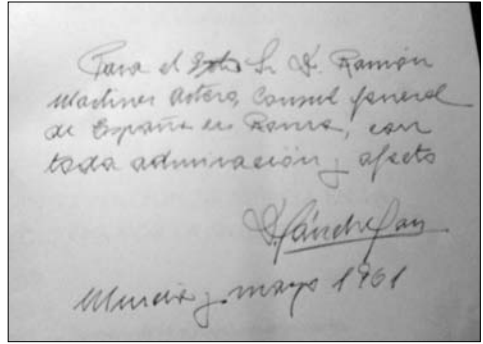 Para el Exmo Sr D. Ramón
Martinez Artero, Consul general
de España en Roma, con
toda admiración y afecto
D. Sánchez Jan
Murcia y mayo 1961